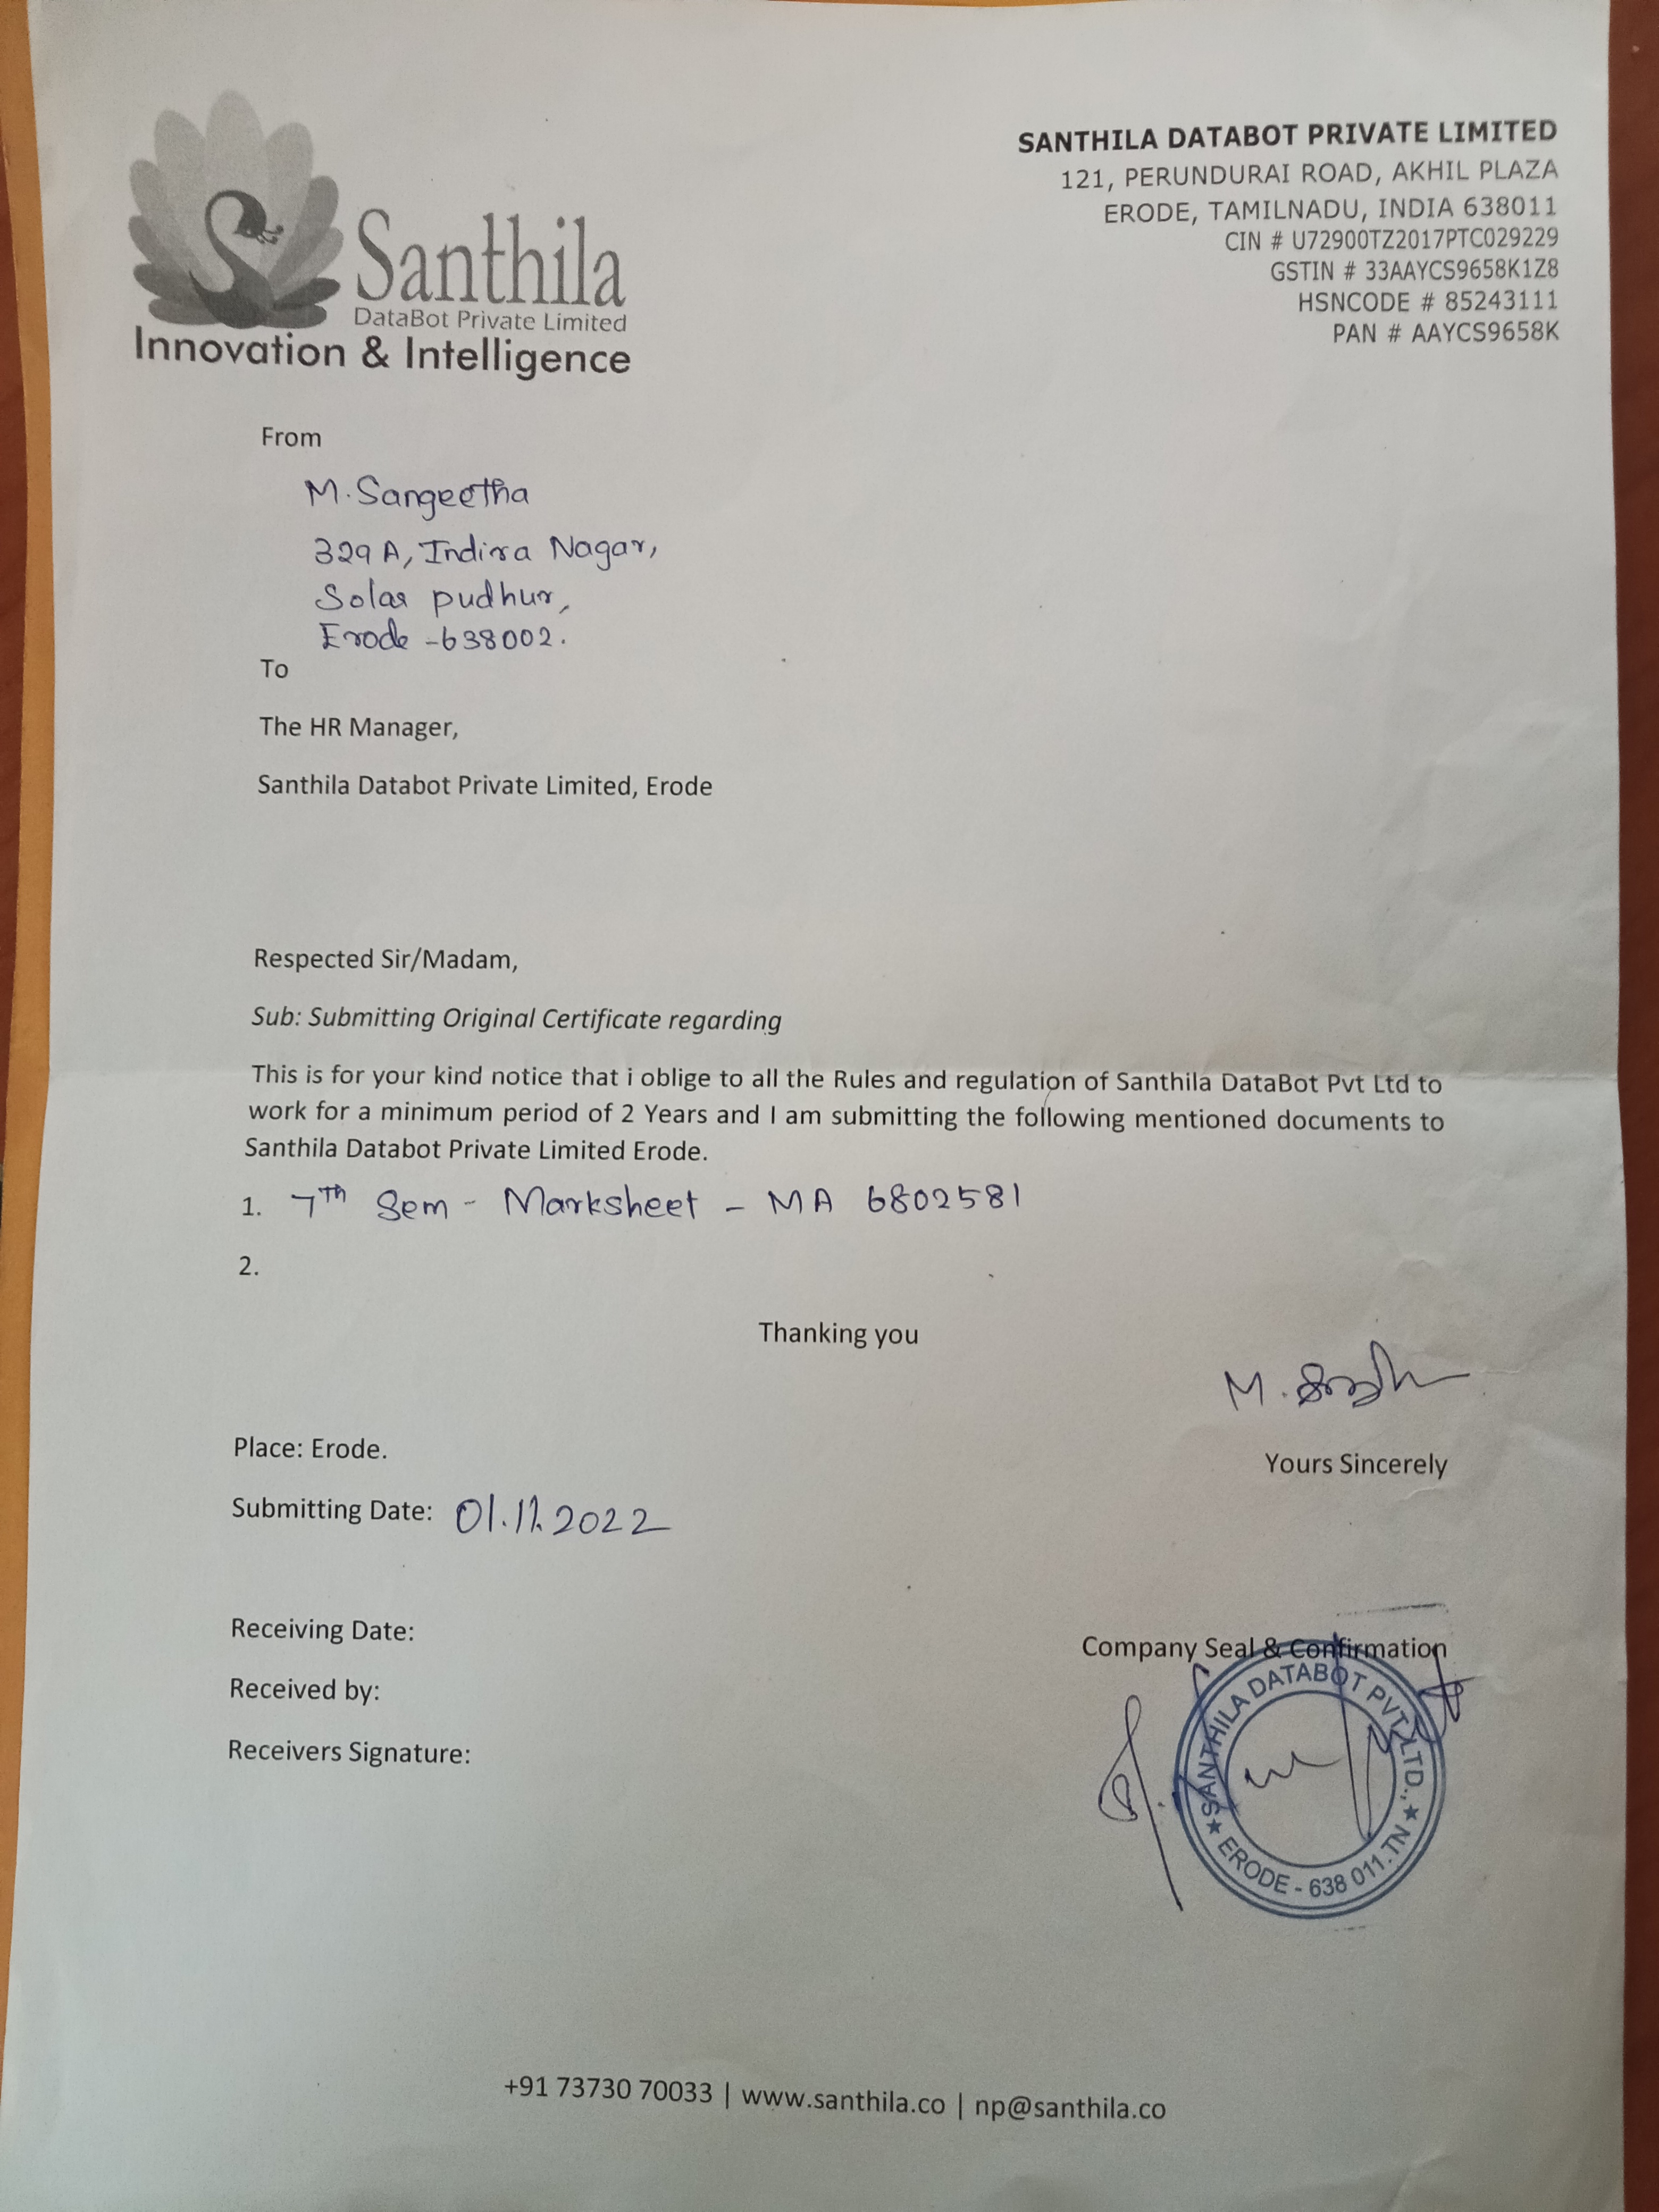 Santhila
DataBot Private Limited
Innovation & Intelligence
SANTHILA DATABOT PRIVATE LIMITED
121, PERUNDURAI ROAD, AKHIL PLAZA
ERODE, TAMILNADU, INDIA 638011
CIN # U72900TZ2017PTC029229
GSTIN # 33AAYCS9658K1Z8
HSNCODE # 85243111
PAN # AAYCS9658K
From
M. Sangeetha
329 A, Indira Nagar,
Solar pudhur,
Erode - 638002.
To
The HR Manager,
Santhila Databot Private Limited, Erode
Respected Sir/Madam,
Sub: Submitting Original Certificate regarding
This is for your kind notice that i oblige to all the Rules and regulation of Santhila DataBot Pvt Ltd to
work for a minimum period of 2 Years and I am submitting the following mentioned documents to
Santhila Databot Private Limited Erode.
1. 7Th Sem - Marksheet - MA 6802581
2.
Thanking you
M.
Place: Erode.
Yours Sincerely
Submitting Date: 01.11.2022
Receiving Date:
Company Seal & Confirmation
Received by:
Receivers Signature:
SANTHILA DATABOT PVT LTD.,
★ ERODE - 638 011.TN ★
+91 73730 70033 | www.santhila.co | np@santhila.co